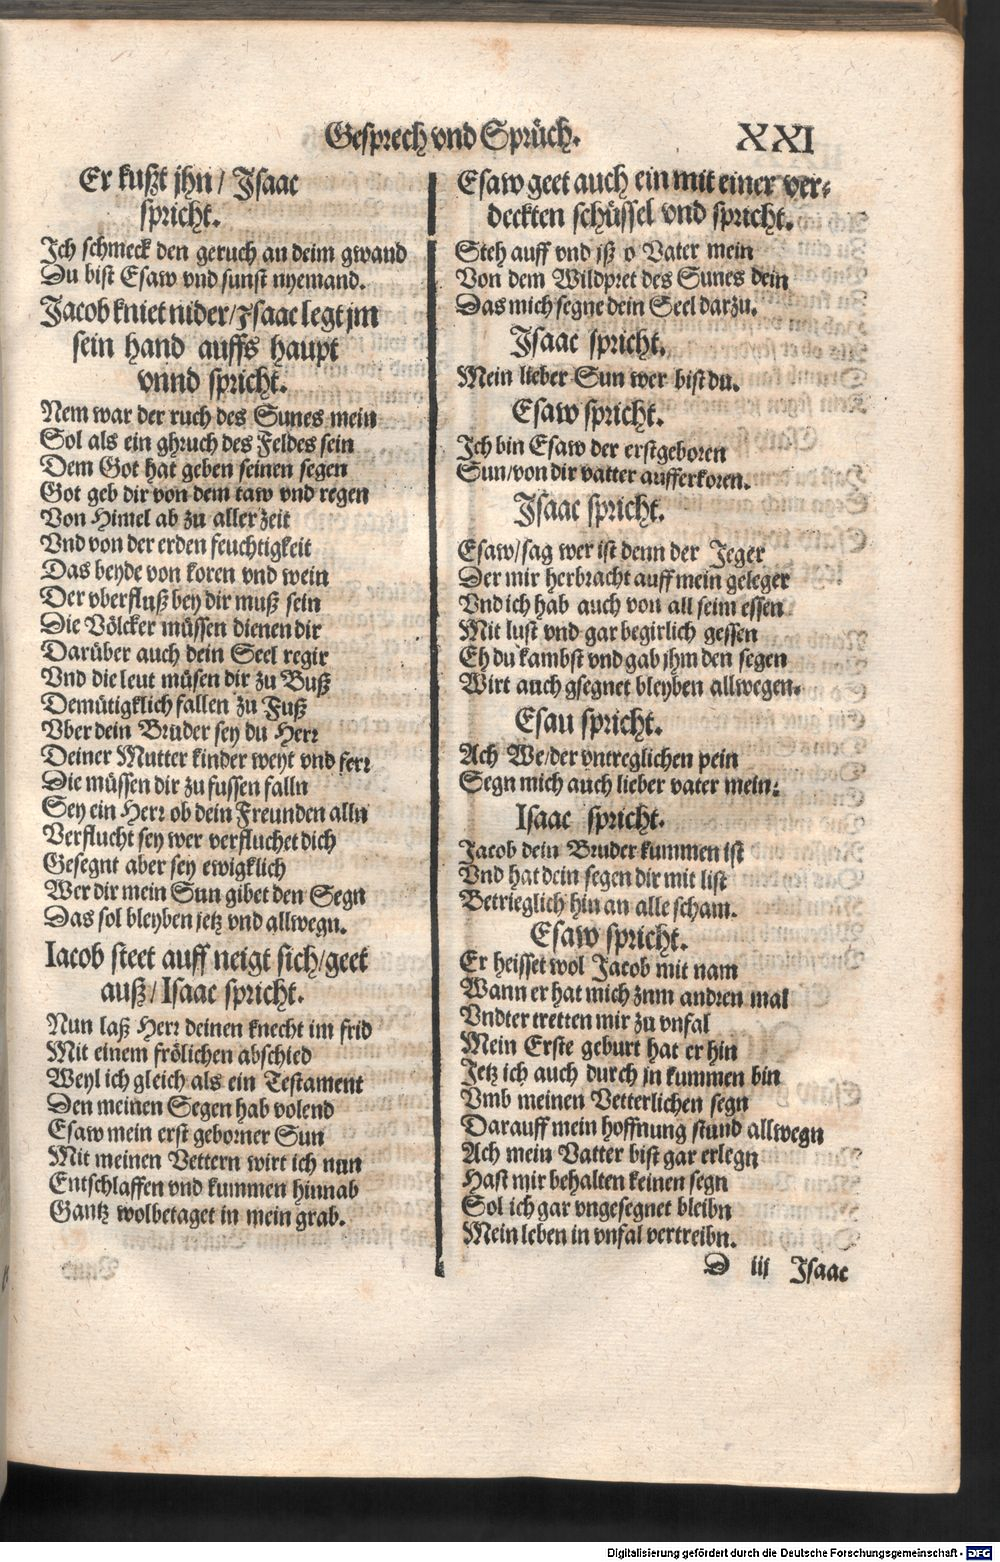 Gesprech vnd Sprüch. XXI
Er kußt jhn / Isaac
spricht.
Ich schmeck den geruch an deim gwand
Du bist Esaw vnd sunst nyemand.
Jacob kniet nider / Isaac legt jm
sein hand auffs haupt
vnnd spricht.
Nem war der ruch des Sunes mein
Sol als ein ghruch des Feldes sein
Dem Got hat geben seinen segen
Got geb dir von dem taw vnd regen
Von Himel ab zu aller zeit
Vnd von der erden feuchtigkeit
Das beyde von koren vnd wein
Der vberfluß bey dir muß sein
Die Völcker müssen dienen dir
Darüber auch dein Seel regir
Vnd die leut müsen dir zu Buß
Demütigklich fallen zu Fuß
Vber dein Bruder sey du Herr
Deiner Mutter kinder weyt vnd ferr
Die müssen dir zu fussen falln
Sey ein Herr ob dein Freunden alln
Verflucht sey wer verfluchet dich
Gesegnt aber sey ewigklich
Wer dir mein Sun gibet den Segn
Das sol bleyben jetz vnd allwegn.
Iacob steet auff neigt sich / geet
auß / Isaac spricht.
Nun laß Herr deinen knecht im frid
Mit einem frölichen abschied
Weyl ich gleich als ein Testament
Den meinen Segen hab volend
Esaw mein erst geborner Sun
Mit meinen Vettern wirt ich nun
Entschlaffen vnd kummen hinnab
Gantz wolbetaget in mein grab.
Esaw geet auch ein mit einer ver⸗
deckten schüssel vnd spricht.
Steh auff vnd iß o Vater mein
Von dem Wildpret des Sunes dein
Das mich segne dein Seel darzu.
Isaac spricht.
Mein lieber Sun wer bist du.
Esaw spricht.
Ich bin Esaw der erstgeboren
Sun / von dir vatter aufferkoren.
Isaac spricht.
Esaw / sag wer ist denn der Jeger
Der mir herbracht auff mein geleger
Vnd ich hab auch von all seim essen
Mit lust vnd gar begirlich gessen
Eh du kambst vnd gab jhm den segen
Wirt auch gsegnet bleyben allwegen.
Esau spricht.
Ach We / der vntreglichen pein
Segn mich auch lieber vater mein:
Isaac spricht.
Jacob dein Bruder kummen ist
Vnd hat dein segen dir mit list
Betrieglich hin an alle scham.
Esaw spricht.
Er heisset wol Jacob mit nam
Wann er hat mich znm andren mal
Vndter tretten mir zu vnfal
Mein Erste geburt hat er hin
Jetz ich auch durch jn kummen bin
Vmb meinen Vetterlichen segn
Darauff mein hoffnung stund allwegn
Ach mein Vatter bist gar erlegn
Hast mir behalten keinen segn
Sol ich gar vngesegnet bleibn
Mein leben in vnfal vertreibn.
D iii Isaac
Digitalisierung gefördert durch die Deutsche Forschungsgemeinschaft - DFG